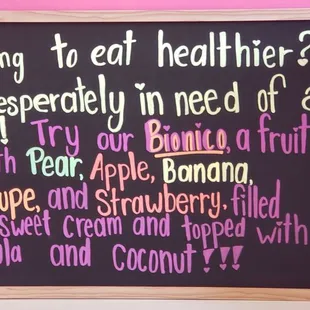 ng to eat healthier?
esperately in need of a
! Try our Bionico, a fruit
th Pear, Apple, Banana,
upe, and Strawberry, filled
sweet cream and topped with
ola and Coconut!!!